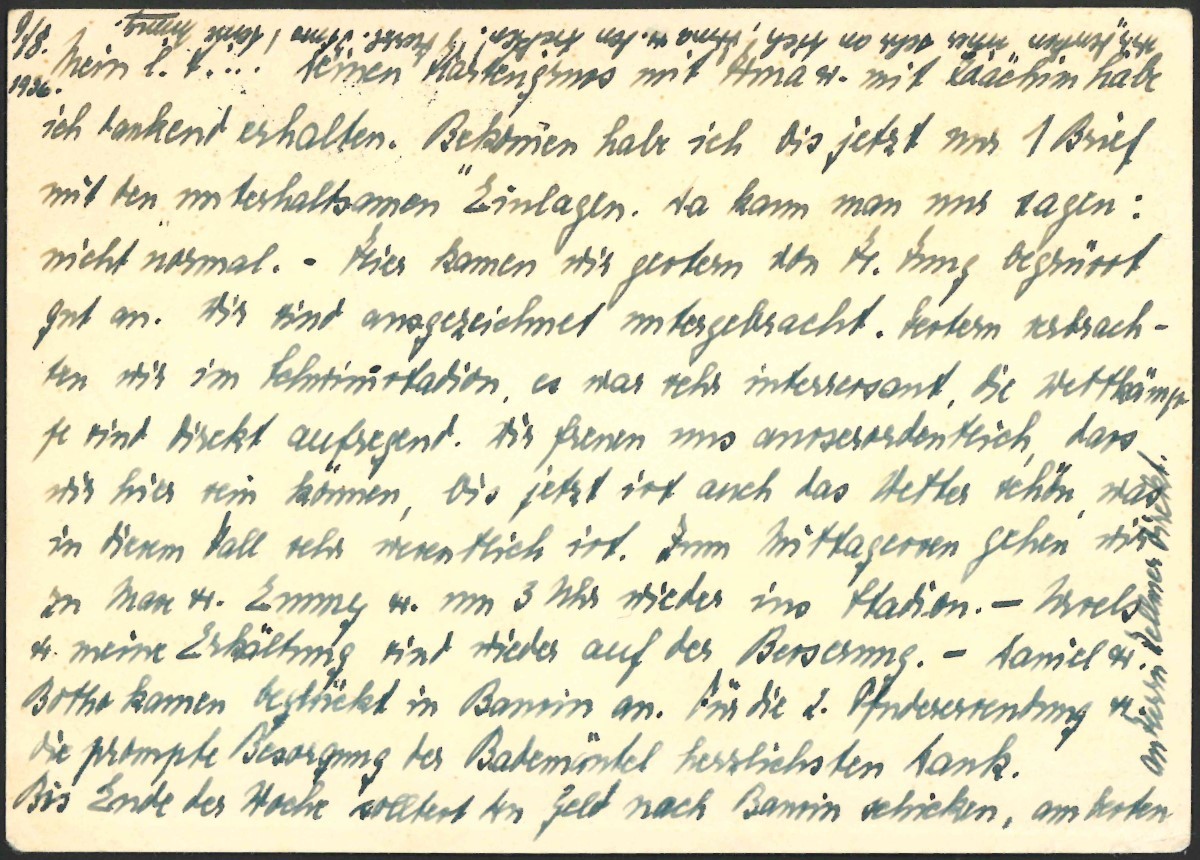 9/8.
1936.
Mein l. V.... Deinen Kartengruss mit Oma u. mit Joachim habe
ich dankend erhalten. Bekom̄en habe ich bis jetzt nur 1 Brief
mit den unterhaltsamen "Einlagen. Da kann man nur sagen:
nicht normal. - Hier kamen wir gestern von Fr. Jung begrüsst
gut an. Wir sind ausgezeichnet untergebracht. Gestern verbrach-
ten wir im Schwim̄stadion, es war sehr interressant, die Wettkämp-
fe sind direkt aufregend. Wir freuen uns ausserordentlich, dass
wir hier sein können, bis jetzt ist auch das Wetter schön, was
in diesem Fall sehr wesentlich ist. Zum Mittagessen gehen wir
zu Max u. Emmy u. um 3 Uhr wieder ins Stadion. - Ursels
u. meine Erkältung sind wieder auf der Besserung. - Daniel u.
Botho kamen beglückt in Bansin an. Für die 2. Pudersendung u.
die prompte Besorgung der Bademäntel herzlichsten Dank.
Bis Ende der Woche solltest Du Geld nach Bansin schicken, am besten
an Herrn Dellmer direkt.